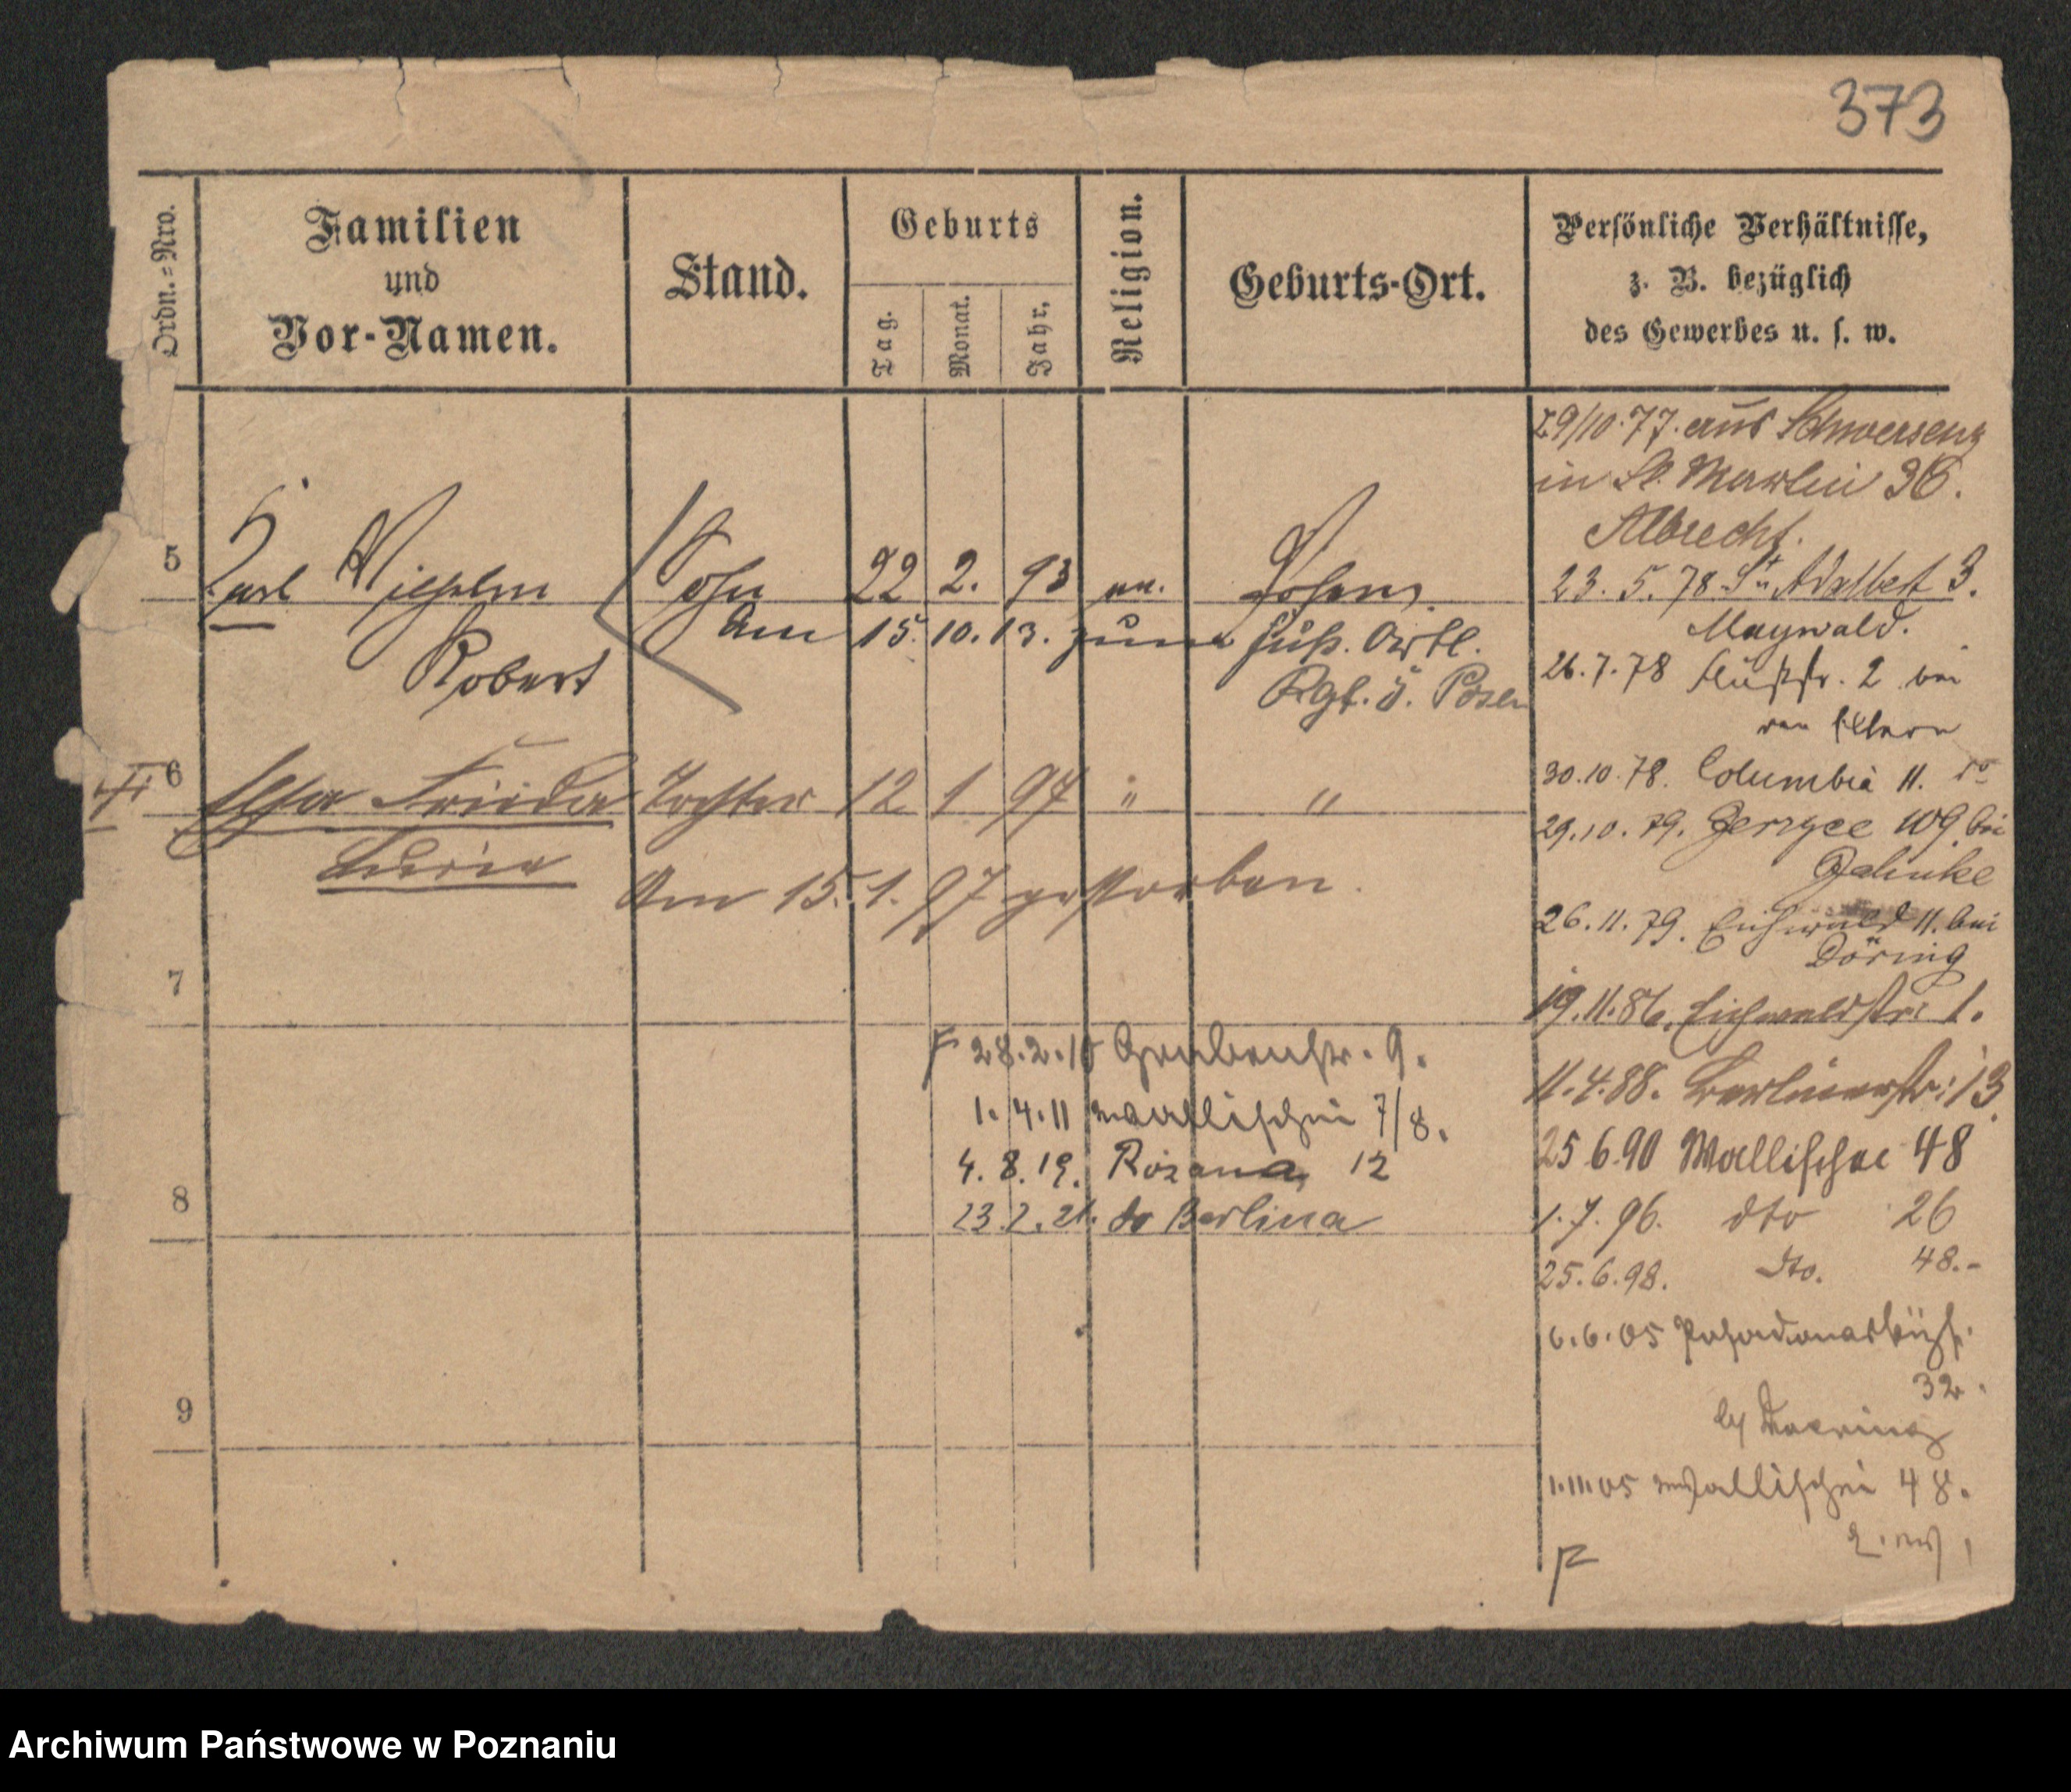 373
Ordn.=Nro.
Familien
und
Vor-Namen.
Stand.
Geburts
Tag.
Monat.
Jahr.
Religion.
Geburts-Ort.
Persönliche Verhältnisse,
z. B. bezüglich
des Gewerbes u. s. w.
5
Karl Wilhelm
Robert
Sohn
22 2. 93 Posen.
Am 15. 10. 13. zum Fuß. Artl.
Rgt. 5. Posen
6
Elsa Frieda
Tochter 12 1 97 " "
Am 15. 1. 97 gestorben.
7
8
9
28.2.10 Grabenstr. 9.
1.4.11 Wallischei 7/8.
4. 8. 19. Różana 12
23.2.21. do Berlina
29/10.77. aus Schwersenz
in St. Martin 36.
Albrecht.
23. 5. 78 St. Adalbert 3.
Maywald.
26.7.78 2 bei
den Eltern
30.10.78. Columbia 11. do
29.10.79. Jerzyce 109 bei
Jahnke
26.11.79. Eichwald 11. bei
Döring
19.11.86. Eichwaldstr. 1.
11.4.88. Berlinerstr. 13
25 6.90 Wallischei 48
1.7.96. dto 26
25.6.98. dto. 48.-
6.6.05
32.
1.11.05 Wallischei 48.
Archiwum Państwowe w Poznaniu